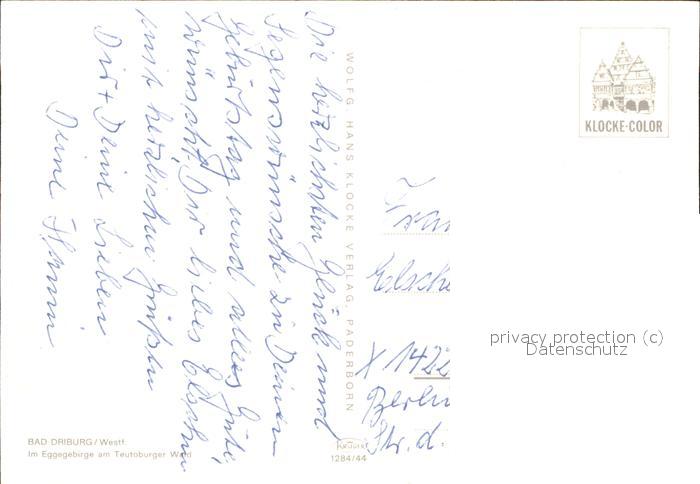 Die herzlichsten Glück und
Segenswünsche zu Deinem
Geburtstag und alles Gute
wünscht Dir liebes Elschen
mit herzlichen Grüßen
Dir + Deine Lieben
Deine
WOLFG. HANS KLOCKE VERLAG, PADERBORN
KLOCKE-COLOR
Frau
Elsche
X 1422
Berlin
Str. d.
privacy protection (c)
Datenschutz
BAD DRIBURG/Westf.
Im Eggegebirge am Teutoburger Wald
KRÜGER
1284/44